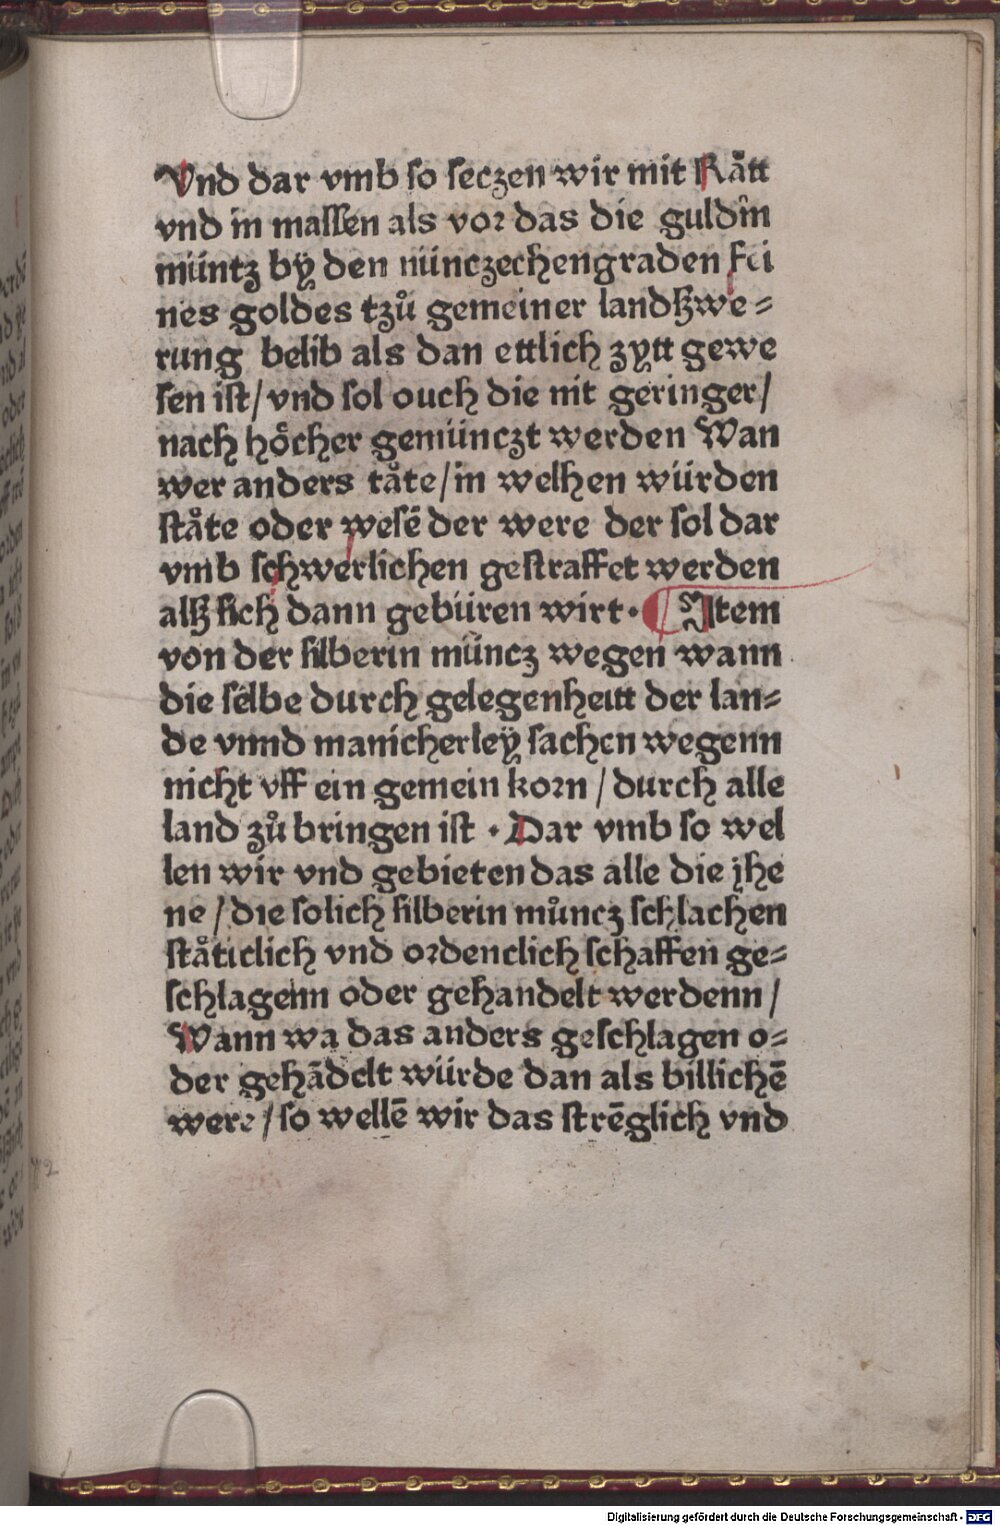 Vnd dar vmb so seczen wir mit Rått
vnd in massen als vor das die guldin
müntz bÿ den nünczechengraden fei
nes goldes tzů gemeiner landßwe-
rung belib als dan ettlich zytt gewe
sen ist/ vnd sol ouch die nit geringer/
nach höcher gemünczt werden Wan
wer anders tåte/in welhen würden
ståte oder wesē der were der sol dar
vmb schwerlichen gestraffet werden
alß sich dann gebüren wirt. Item
von der silberin müncz wegen wann
die selbe durch gelegenheitt der lan-
de vnnd manicherleÿ sachen wegenn
nicht vff ein gemein korn / durch alle
land zů bringen ist . Dar vmb so wel
len wir vnd gebieten das alle die jhe
ne / die solich silberin můncz schlachen
ståticlich vnd ordenclich schaffen ge-
schlagenn oder gehandelt werdenn /
Wann wa das anders geschlagen o-
der gehādelt würde dan als billichē
were / so wellē wir das strēglich vnd
Digitalisierung gefördert durch die Deutsche Forschungsgemeinschaft - DFG